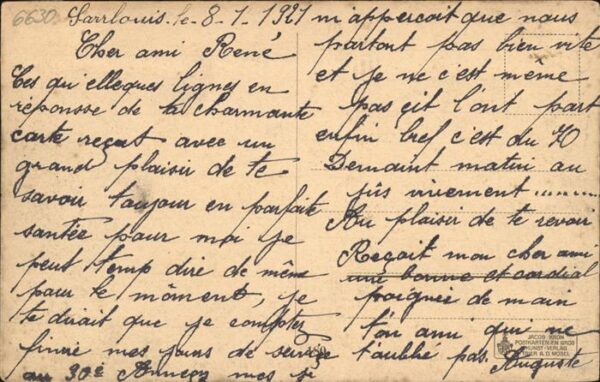 6630
Sarrlouis. le 8-1-1921
Cher ami René
Ces qu'elleques lignes en
réponsse de ta charmante
carte reçut avec un
grand plaisir de te
savoir toujour en parfaite
santée pour moi je
peut temp dire de même
pour le môment, je
te dirait que je compter
finire mes jours de service
au 30é mes
m'apperçoit que nous
partont pas bien vite
et je ne c'est meme
pas çit l'ont part
enfin bref c'est du 70
Demaint matin au
jus vivement ........
Au plaisir de te revoir
Reçoit mon cher ami
une bonne et cordial
poignée de main
ton ami qui ne
t'oublie pas. Auguste
JACOB KRON
POSTKARTEN EN GROS
KUNST-VERLAG
TRIER A. D. MOSEL